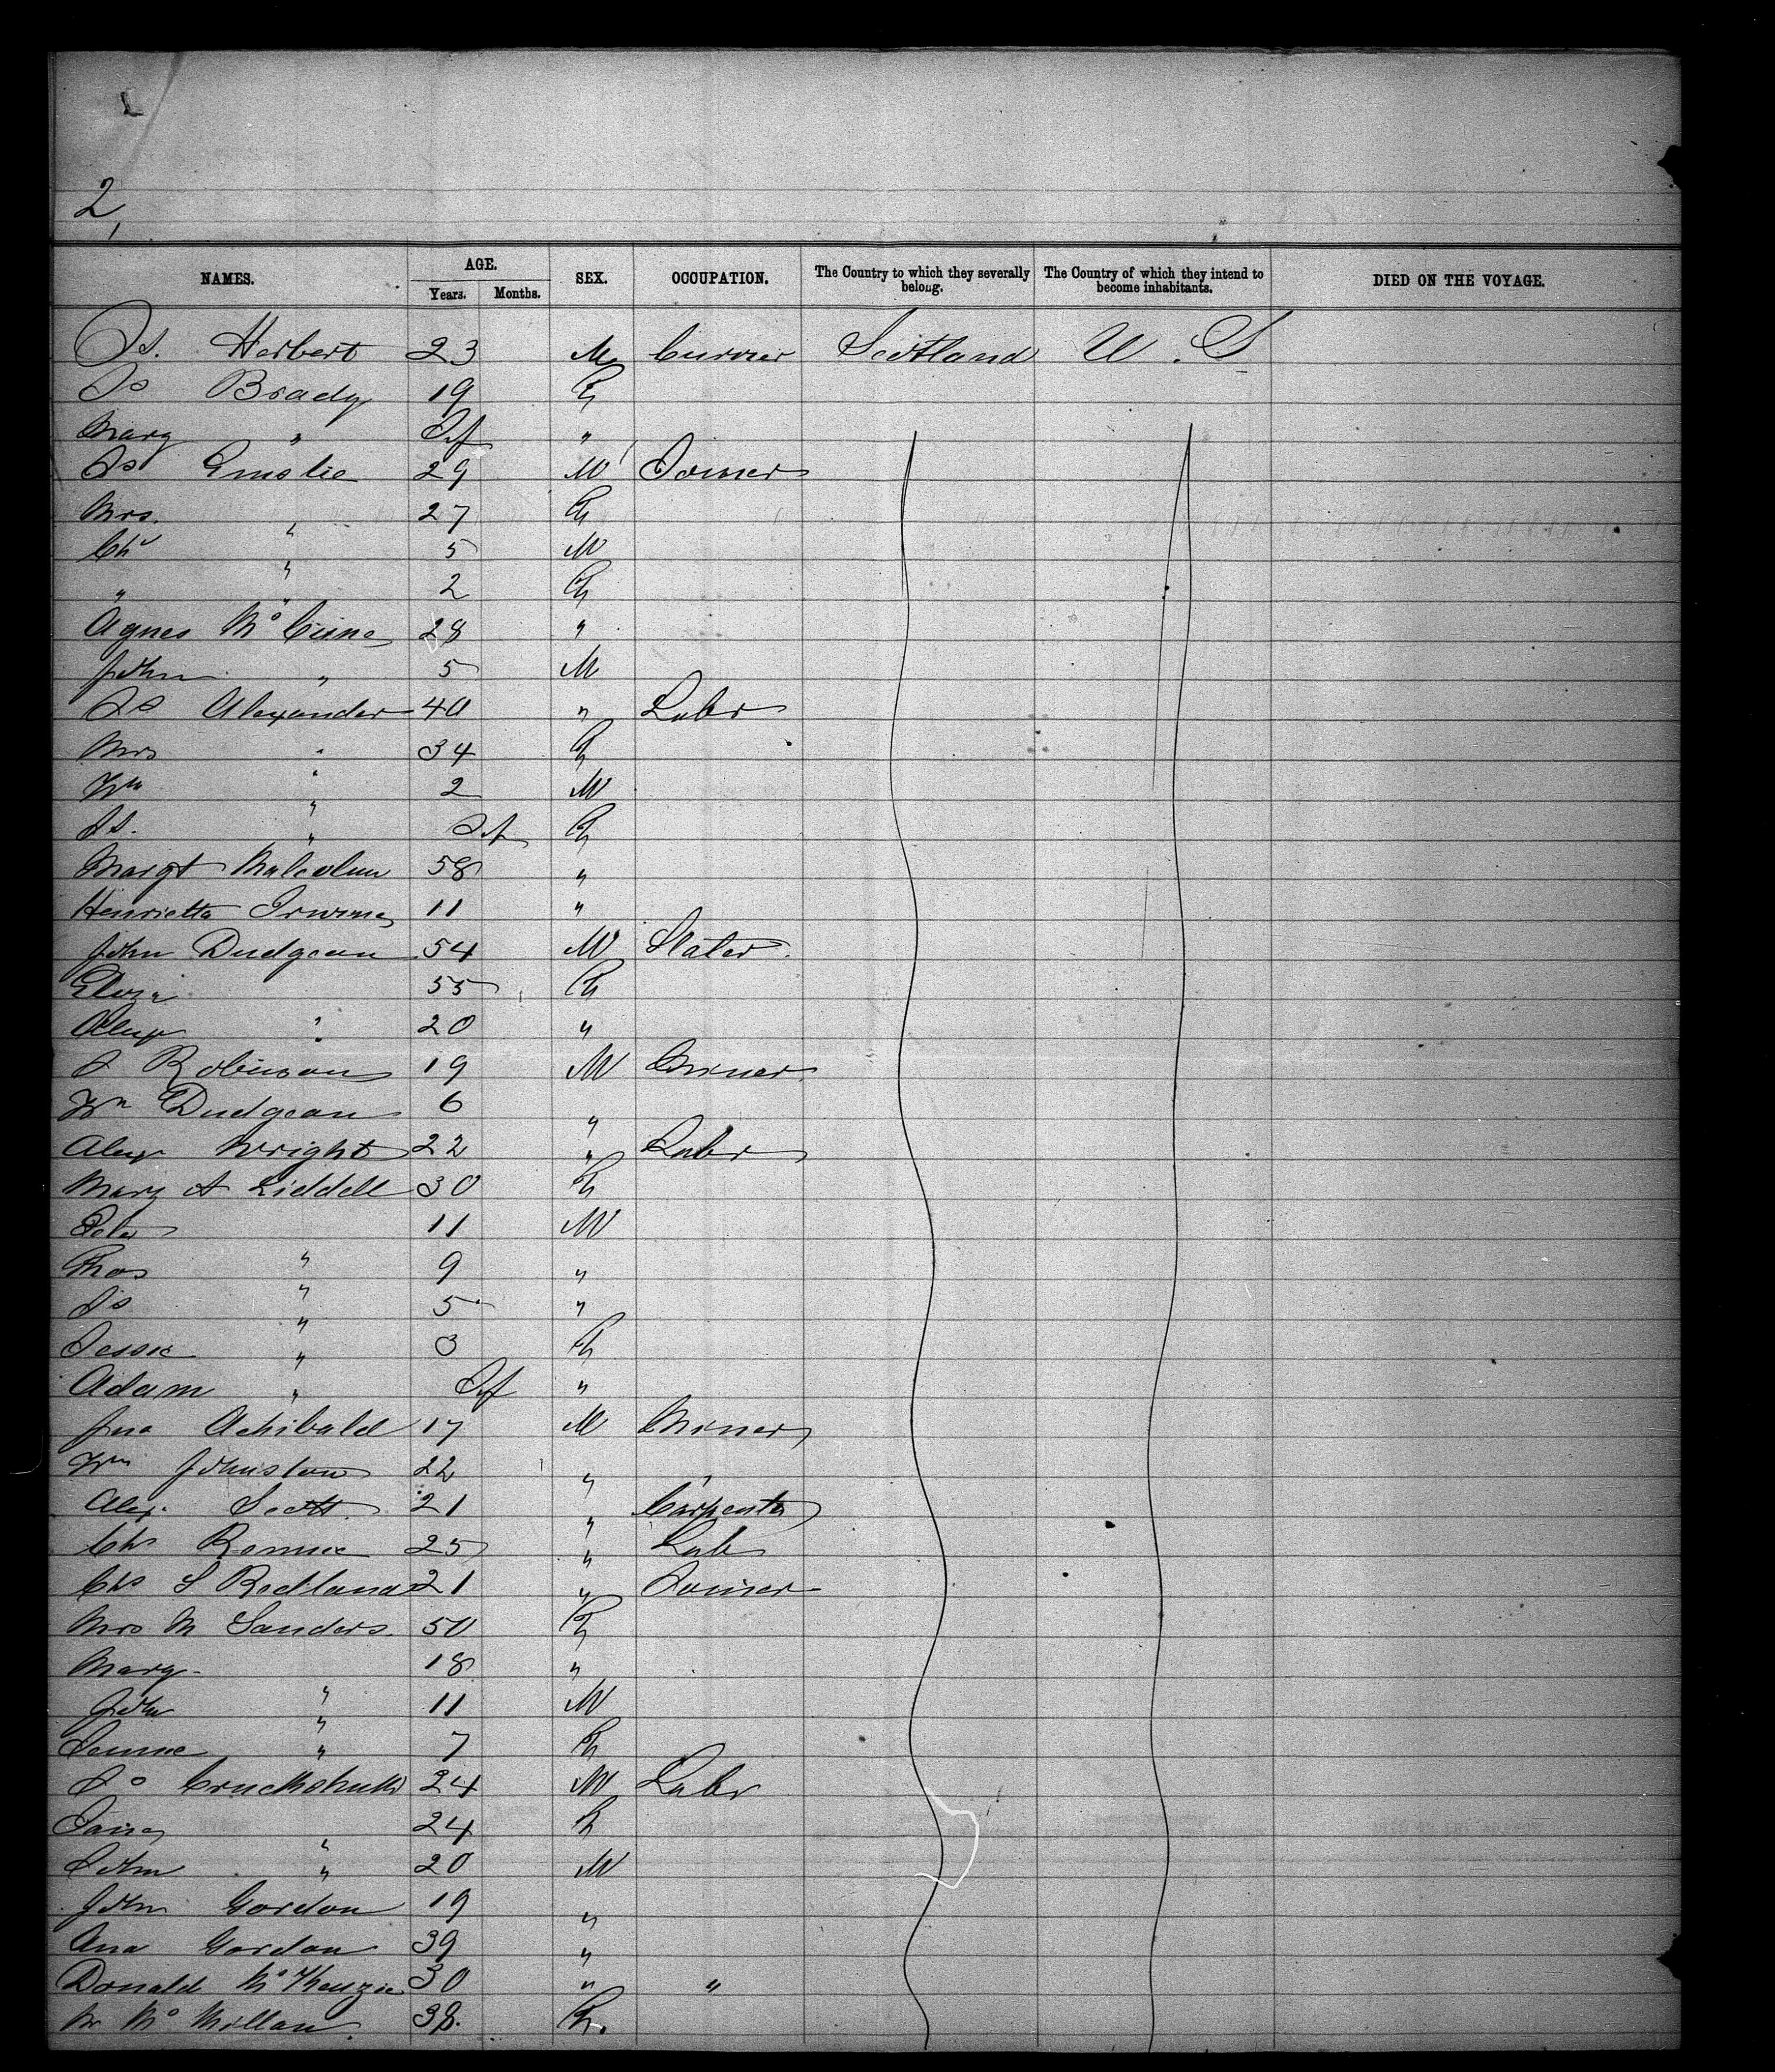 2,
NAMES. AGE. Years. Months. SEX. OCCUPATION. The Country to which they severally belong. The Country of which they intend to become inhabitants. DIED ON THE VOYAGE.
Js. Herbert 23 M Currier Scotland U. S
Js Brady 19 F
Marg " Inf "
Js Emslie 29 M Joiner
Mrs. " 27 F
Chs " 5 M
" " 2 F
Agnes McCune 28 "
John " 5 M
Js Alexander 40 " Labr
Mrs " 34 F
Wm " 2 M
Js. " Inf F
Margt Malcolm 58 "
Henrietta Irvine 11 "
John Dudgeon 54 M Slater
Eliza 55 F
Alex " 20 "
J Robinson 19 M Miner
Wm Dudgeon 6 "
Alex Wright 22 " Labr
Mary A Liddell 30 F
Peter 11 M
Thos " 9 "
Js " 5 "
Jessie " 3 F
Adam " Inf "
Jno Achibald 17 M Miner
Wm Johnston 22 "
Alex. Scott 21 " Carpenter
Chs Rennie 25 " Lab
Chs S Redland 21 " Joiner
Mrs M Sanders 50 F
Marg 18 "
John " 11 M
Jennie " 7 F
24 M Labr
Jane " 24 F
John " 20 M
John Gordon 19 "
Ana Gordon 39 "
Donald McKenzie 30 " "
M McMillan 38. F.